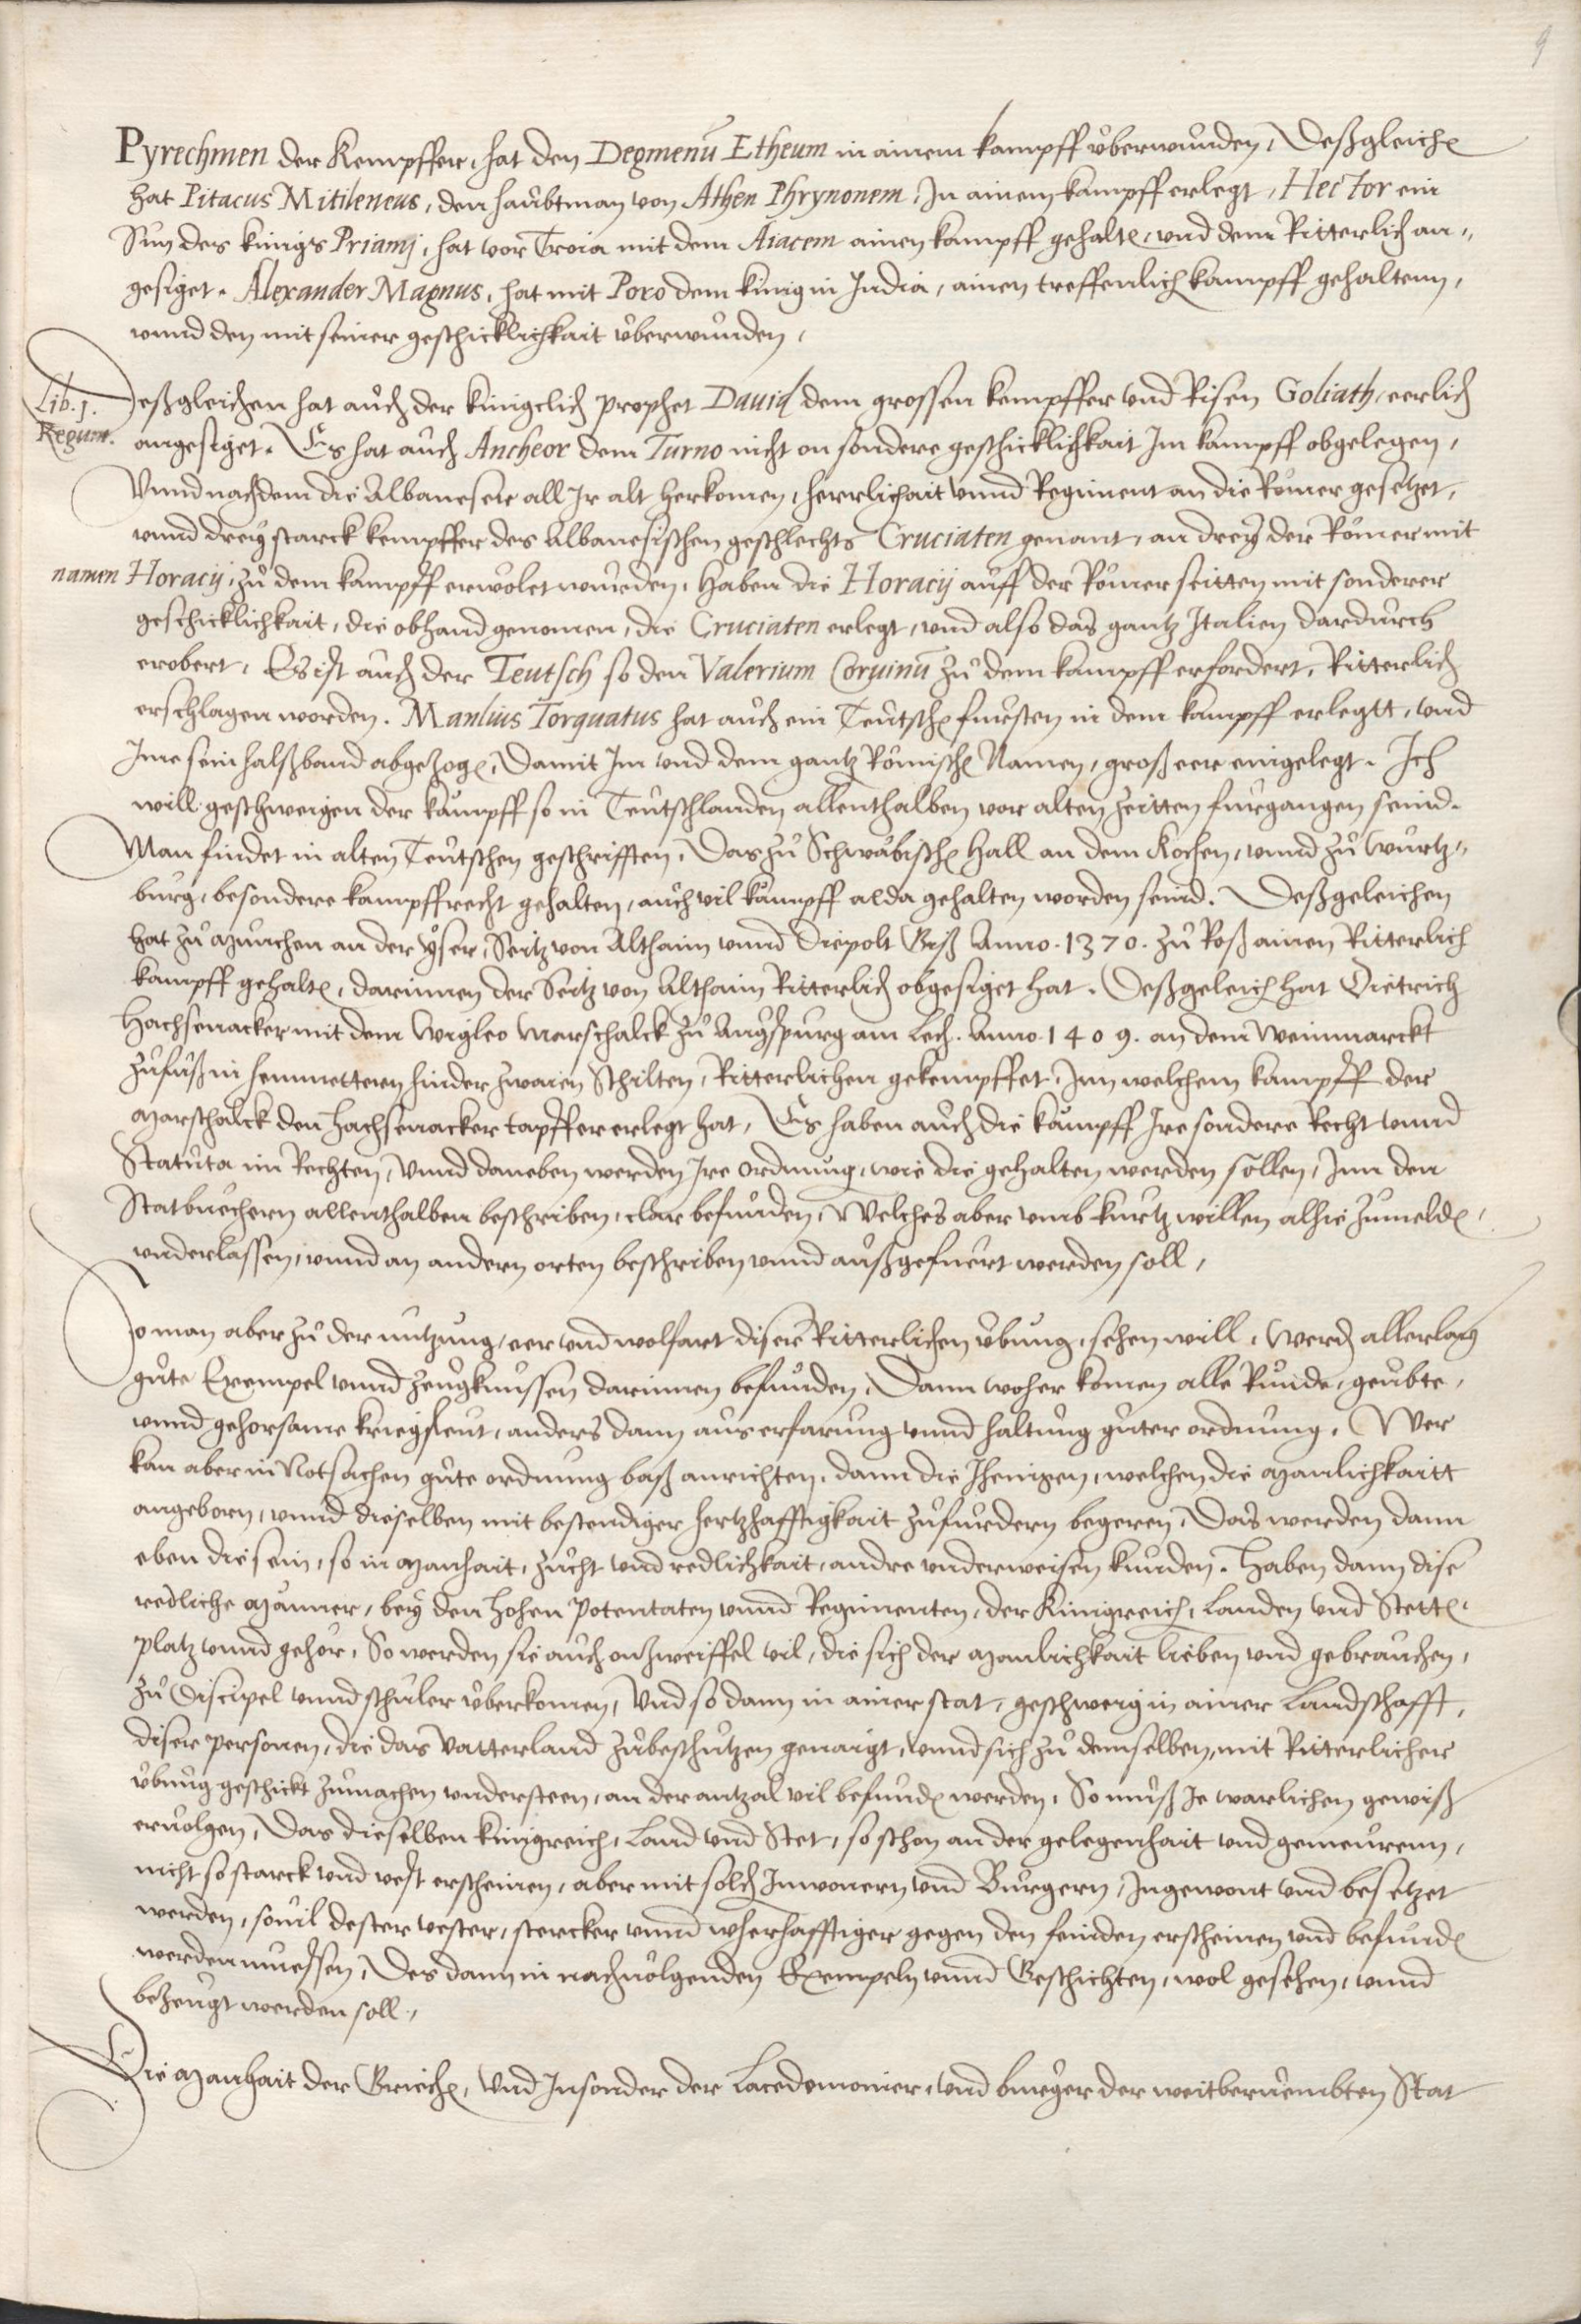 9
Pyrechmen der Kempffer, hat den Degmenū Etheum in ainem kampff vberwunden, Deßgleichē
hat Pitacus Mitileneus, den haubtman von Athen Phrynonem, In ainem kampff erlegt, Hector ein
Sun des kinigs Priamj, hat vor Troia mit dem Aiacem ainen kampff gehaltē, vnd dem Ritterlich an-
gesiget. Alexander Magnus, hat mit Poro dem kinig in India, ainen treffenlich kampff gehaltenn,
vnnd den mit seiner geschicklichkait vberwunden,
Lib. j. Regum.
Deßgleichen hat auch der kinigclich prophet Dauid dem grossen kempffer vnd Risen Goliath, eerlich
angesiget. Es hat auch Ancheor dem Turno nicht on sondere geschicklichkait Im kampff obgelegen,
Vnnd nachdem die Albaneser all Ir alt herkomen, herrlichait vnnd Regiment an die Römer gesetzet,
vnnd dreÿ starck kempffer des Albanesischen geschlechts Cruciaten genant, an dreÿ der Römer mit
namen Horacij, zů dem kampff erwölet wurden, haben die Horacij auff der Römer seitten mit sonderer
geschicklichkait, die obhand genomen, die Cruciaten erlegt, vnd also das gantz Italien dardurch
erobert, Es ist auch der Teutsch so den Valerium Coruinū zů dem kampff erfordert, Ritterlich
erschlagen worden. Manlius Torquatus hat auch ein Teutschē fursten in dem kampff erlegtt, vnd
Ime sein halßband abgezogē, Damit Im vnd dem gantz Römischē Namen, groß eer eingelegt. Ich
will geschweigen der kämpff so in Teutschlanden allenthalben vor alten zeitten furgangen seind.
Man findet in alten Teutschen geschrifften, Das zů Schwäbischē Hall an dem Kochen, vnnd zů Wurtz-
burg, besondere kampffrecht gehalten, auch vil kämpff alda gehalten worden seind. Deßgeleichen
hat zů Munchen an der Yser, Seitz von Althaim vnnd Diepolt Giß Anno. 1370. zů Roß ainen Ritterlich
kampff gehaltē, darinnen der Seitz von Althaim Ritterlich obgesiget hat. Deßgeleich hat Dietrich
Hachsenacker mit dem Wigleo Marschalck zů Augspurg am Lech. Anno. 1409. an dem Weinmarckt
zůfůß in hemmettern hinder zwaien Schilten, Ritterlichen gekempffet, Inn welchem kampff der
Marschalck den Hachsenacker tapffer erlegt hat, Es haben auch die kämpff Ire sondere Recht vnnd
Statuta im Rechten, vnnd daneben werden Ire ordnung, wie die gehalten werden sollen, Inn den
Statbuechern allenthalben beschriben, clar befunden, Welches aber vmb kurtz willen alhie zumeldē,
vnderlassen, vnnd an andern orten beschriben vnnd außgefuert werden soll,
So man aber zů der nutzung, eer vnd wolfart diser Ritterlichen vbung, sehen will, Werdē allerlaÿ
gůte Exempel vnnd zeugknussen darinnen befunden, Dann woher komen alle Runde, geubte,
vnnd gehorsame kriegsleut, anders dann aus erfarung vnnd haltung gůter ordnung. Wer
kan aber in Notsachen gůte ordnung baß anrichten, dann die Ihenigen, welchen die Manlichkaitt
angeborn, vnnd dieselben mit bestendiger hertzhafftigkait zůfurdern begeren, Das werden dann
eben die sein, so in Manhait, zucht vnd redlichkait, andre vnderweisen kunden. Haben dann dise
redliche Männer, beÿ den hohen Potentaten vnnd Regimenten, der Kinigreich, Landen vnd Stettē,
platz vnnd gehör, So werden sie auch on zweiffel vil, die sich der Manlichkait lieben vnd gebrauchen,
zů Discipel vnnd schuler vberkomen, Vnd so dann in ainer stat, geschweig in ainer Landschafft,
diser personen, die das Vatterland zubeschutzen genaigt, vnnd sich zů demselben, mit Ritterlicher
vbung geschickt zůmachen vndersteen, an der anzal vil befundē werden, So můß Je warlichen gewiß
eruolgen, Das dieselben kinigreich, Land vnd Stet, so schon an der gelegenhait vnd gemeurenn,
nicht so starck vnd vest erscheinen, aber mit solch Inwonern vnd Burgern, Ingewont vnd besetzet
werden, souil dester vester, stercker vnnd wherhafftiger gegen den feinden erscheinen vnd befundē
werden muessen, Des dann in nachuolgenden Exempeln vnnd Geschichten, wol gesehen, vnnd
bezeugt werden soll,
Die Manhait der Griechē, vnd Insonder der Lacedemonier, vnd burger der weitberuembten Stat